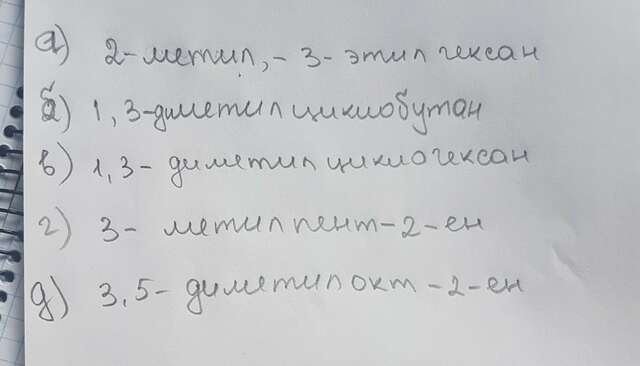 а) 2-метил,-3-этилгексан
б) 1,3-диметилциклобутан
в) 1,3-диметилциклогексан
г) 3-метилпент-2-ен
д) 3,5-диметилокт-2-ен